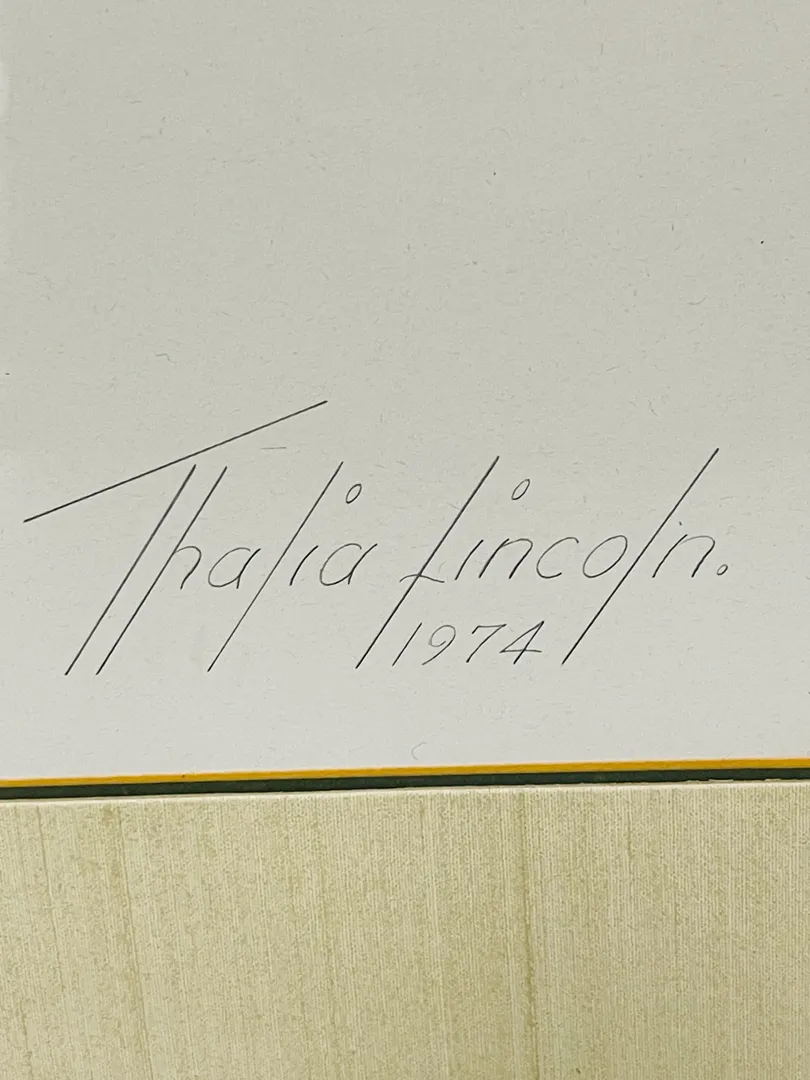 Thalia Lincoln.
1974